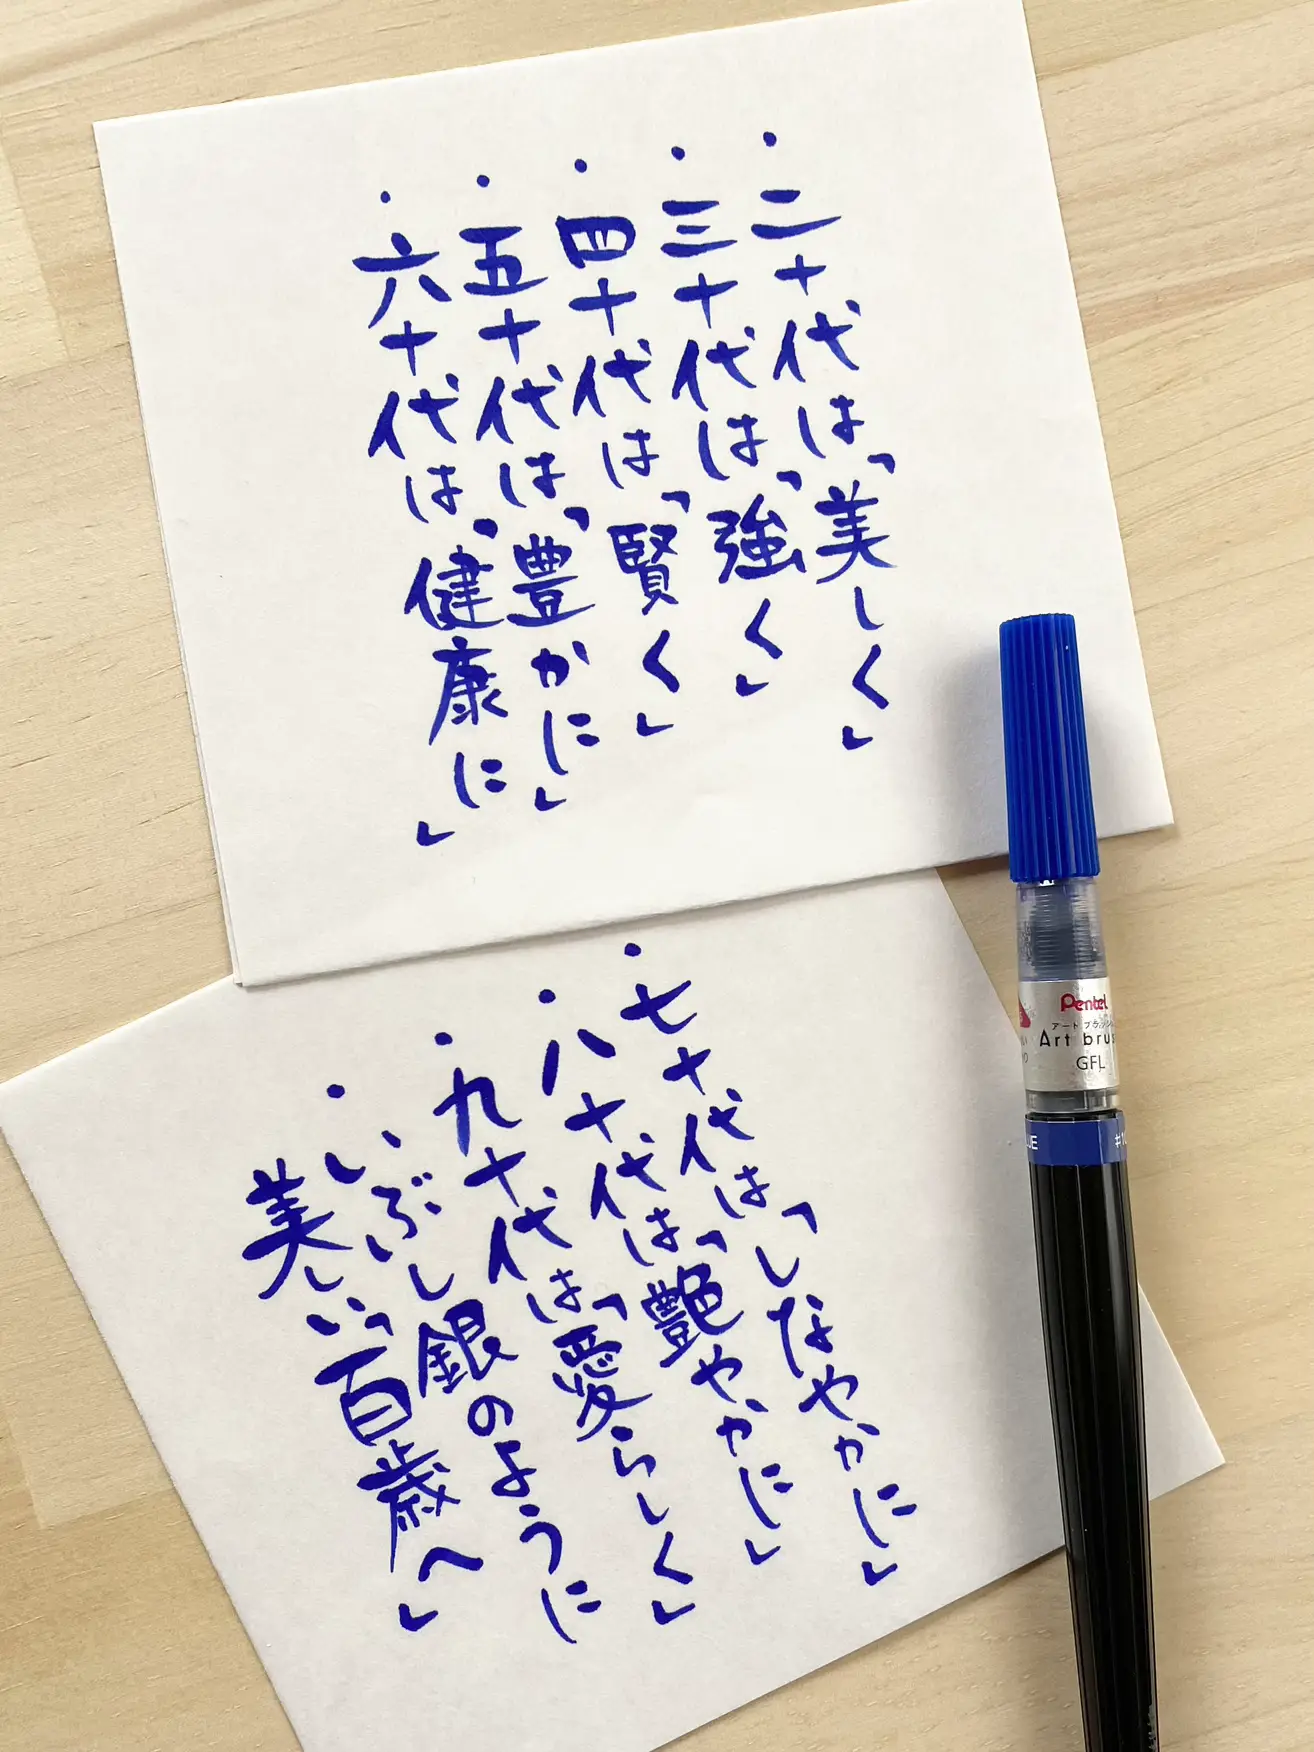 ・二十代は「美しく」
・三十代は「強く」
・四十代は「賢く」
・五十代は「豊かに」
・六十代は「健康に」
・七十代は「しなやかに」
・八十代は「艶やかに」
・九十代は「愛らしく」
・いぶし銀のように
美しい百歳へ」
Pentel
アートブラッシュ
Art brus
GFL